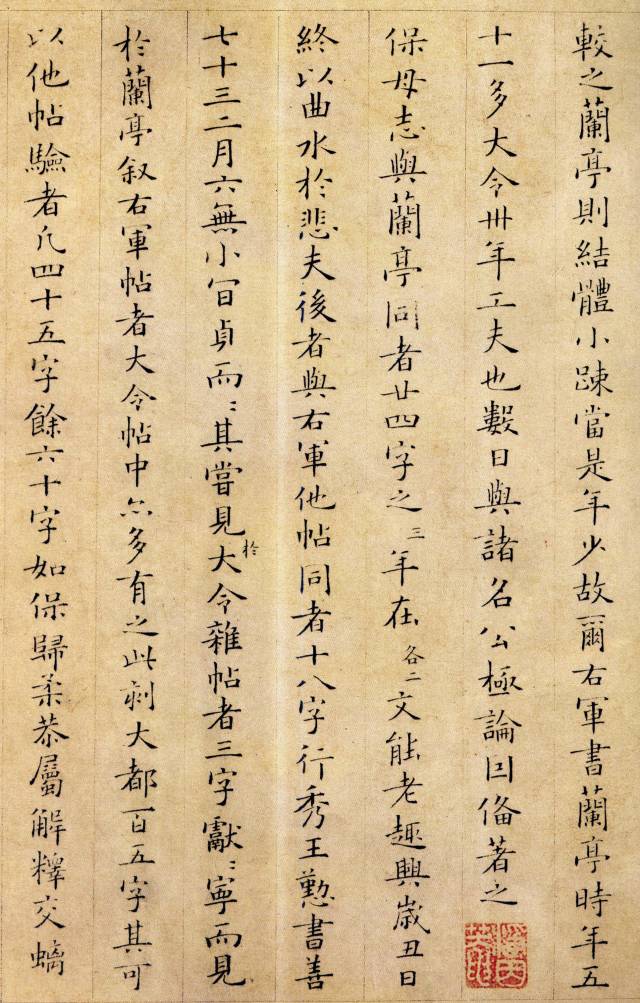 較之蘭亭則結體小踈當是年少故爾右軍書蘭亭時年五
十一多大令卅年工夫也數日與諸名公極論因俻著之
保母志與蘭亭同者廿四字之三年在各二文能老趣興歲丑日
終以曲水於悲夫後者與右軍他帖同者十八字行秀王懃書善
七十三二月六無小百貞而〻其嘗見於大令雜帖者三字獻〻寧而見
於蘭亭叙右軍帖者大令帖中亦多有之此刻大都一百五字其可
以他帖驗者凡四十五字餘六十字如保歸柔恭屬解釋交螭